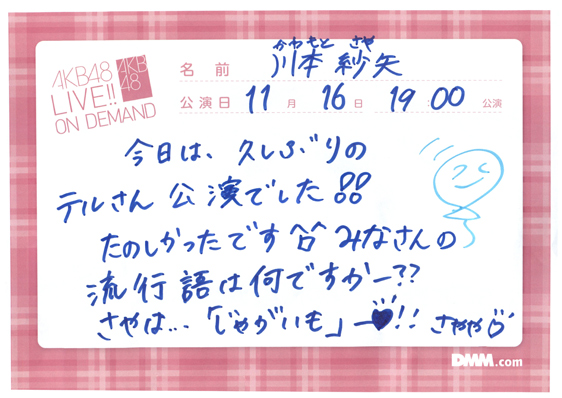 AKB48
LIVE!!
ON DEMAND
AKB
48
かわもと さや
名前 川本 紗矢
公演日 11月 16日 19:00 公演
今日は、久しぶりの
テルさん公演でした!!
たのしかったです^o^みなさんの
流行語は何ですかー??
さやは...「じゃがいも」ー♥!!さやや♡
DMM.com